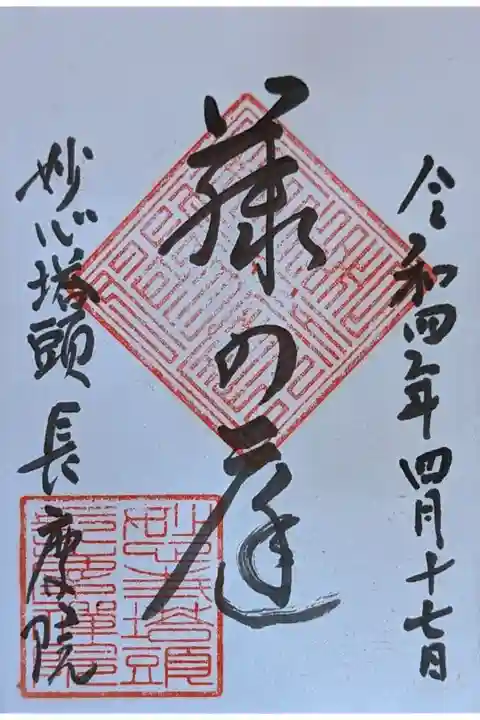 令和四年四月十七日
緑の庭
妙心塔頭 長慶院
妙心寺塔頭